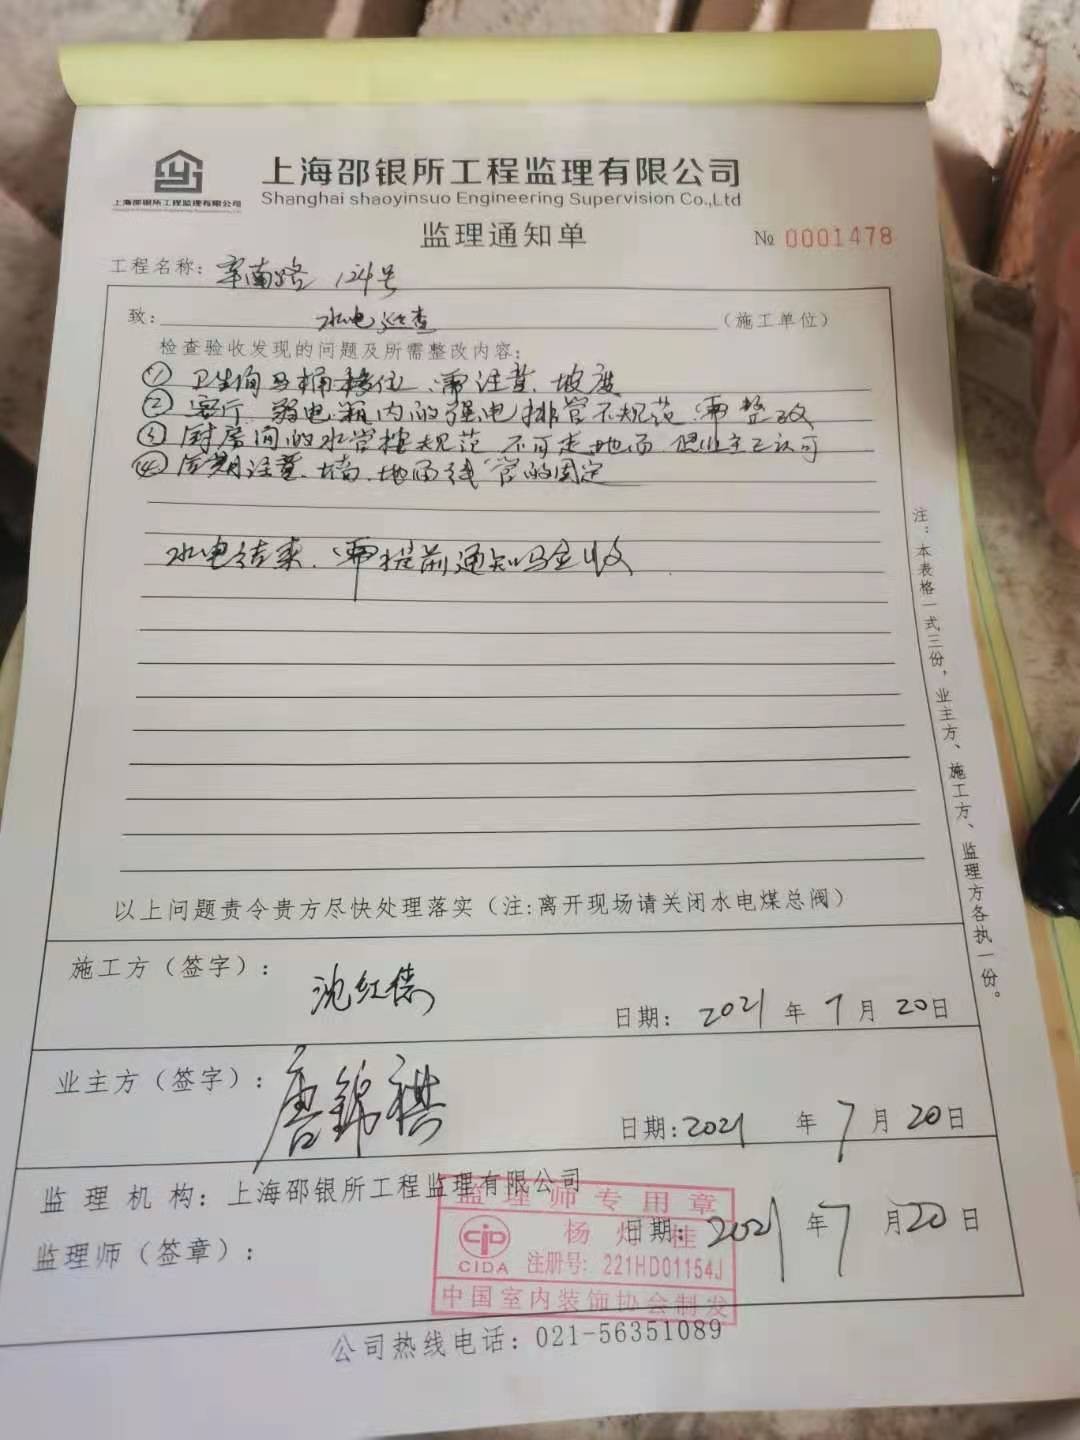 上海邵银所工程监理有限公司
上海邵银所工程监理有限公司
Shanghai shaoyinsuo Engineering Supervision Co.,Ltd
监理通知单
№ 0001478
工程名称: 南路 124号
致: 水电巡查 (施工单位)
检查验收发现的问题及所需整改内容:
① 卫生间马桶移位、需注意、坡度
② 客厅、弱电箱内的强电排管不规范、需整改
③ 厨房间的水管按规范 不可走地面 但业主已认可
④ 后期注意、墙、地面线管的固定
水电结束、需提前通知验收
以上问题责令贵方尽快处理落实(注:离开现场请关闭水电煤总阀)
施工方(签字): 沈红德
日期: 2021 年 7 月 20 日
业主方(签字): 唐锦祺
日期: 2021 年 7 月 20 日
监理机构: 上海邵银所工程监理有限公司
监理师(签章):
日期: 2021 年 7 月 20 日
监理师专用章
杨 桂
CIDA 注册号: 221HD01154J
中国室内装饰协会制发
公司热线电话: 021-56351089
注:本表格一式三份,业主方、施工方、监理方各执一份。